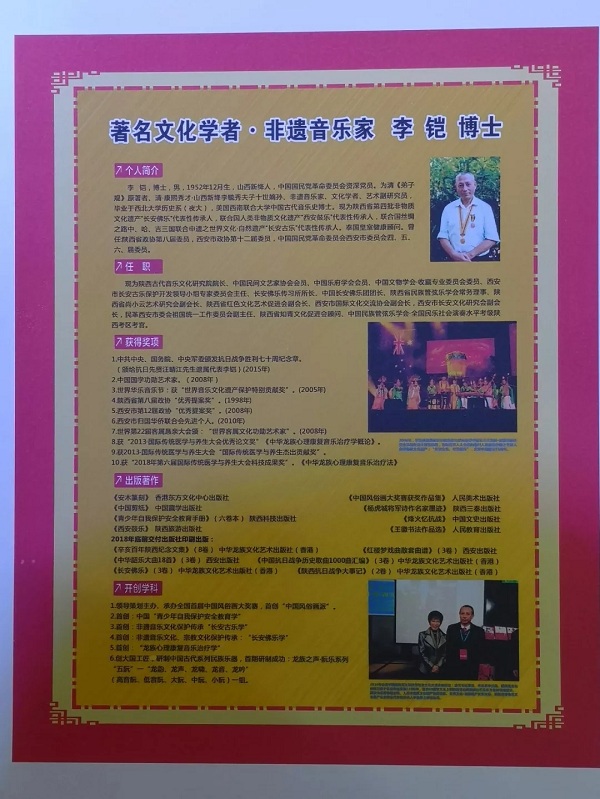 著名文化学者·非遗音乐家 李 铠 博士
个人简介
李 铠，博士，男，1952年12月生，山西新绛人，中国国民党革命委员会资深党员。为清《弟子
规》原著者、清·康熙秀才·山西新绛李毓秀夫子十世嫡孙、非遗音乐家、文化学者、艺术副研究员，
毕业于西北大学历史系（夜大），美国西南联合大学中国古代音乐史博士。现为陕西省第四批非物质
文化遗产"长安佛乐"代表性传承人，联合国人类非物质文化遗产"西安鼓乐"代表性传承人，联合国丝绸
之路中、哈、吉三国联合申遗之世界文化·自然遗产"长安古乐"代表性传承人、泰国皇家健康顾问。曾
任陕西省政协第八届委员，西安市政协第十二届委员，中国国民党革命委员会西安市委员会四、五、
六、届委员。
任 职
现为陕西古代音乐文化研究院院长、中国民间文艺家协会会员、中国乐府学会会员、中国文物学会·收藏专业委员会委员、西安
市长安古乐保护开发领导小组专家委员会主任、长安佛乐传习所所长、中国长安佛乐团团长、陕西省民族管弦乐学会常务理事、陕
西省尚小云艺术研究会副会长、陕西省红色文化艺术促进会副会长、西安市国际文化交流协会副会长，西安市长安文化研究会副会
长，民革西安市委会祖国统一工作委员会副主任、陕西省知青文化促进会顾问、中国民族管弦乐学会·全国民乐社会演奏水平考级陕
西考区考官。
获得奖项
1.中共中央、国务院、中央军委颁发抗日战争胜利七十周年纪念章。
（颁给抗日先贤汪精江先生遗属代表李铠）(2015年)
2.中国国学功勋艺术家。（2008年）
3.世界华乐音乐节：获"世界音乐文化遗产保护特别贡献奖"。(2005年)
4.陕西省第八届政协"优秀提案奖"。(1998年)
5.西安市第12届政协"优秀提案奖"。(2008年)
6.西安市归国华侨联合会先进个人。(2010年)
7.世界第22届客属恳亲大会颁："世界客属文化功勋艺术家"。(2008年)
8.获"2013·国际传统医学与养生大会优秀论文奖"《中华龙族心理康复音乐治疗学概论》。
9.获2013·国际传统医学与养生大会"国际传统医学与养生杰出贡献奖"。
10.获"2018年第六届国际传统医学与养生大会科技成果奖"。《中华龙族心理康复音乐治疗法》
出版著作
《安木篆刻》 香港东方文化中心出版社
《中国风俗画大奖赛获奖作品集》 人民美术出版社
《中国剪纸》 中国国学出版社
《杨虎城将军诗作名家墨迹》 陕西三秦出版社
《青少年自我保护安全教育手册》（六卷本） 陕西科技出版社
《烽火忆抗战》 中国文史出版社
《西安鼓乐》 陕西旅游出版社
《王徽书法作品选》 人民文化出版社
2018年底前交付出版社印刷出版：
《辛亥百年陕西纪念文集》（8卷） 中华龙族文化艺术出版社（香港）
《红楼梦戏曲散套曲谱》（3卷） 西安出版社
《中华韶乐大曲18首》（3卷） 西安出版社
《中国抗日战争历史歌曲1000曲汇编》（3卷） 中华龙族文化艺术出版社（香港）
《长安佛乐》（3卷） 中华龙族文化艺术出版社（香港）
《陕西抗日战争大事记》（2卷） 中华龙族文化艺术出版社（香港）
开创学科
1.领导策划主办、承办全国首届中国风俗画大奖赛，首创"中国风俗画派"。
2.首创：中国"青少年自我保护安全教育学"
3.首创：非遗音乐文化保护传承"长安古乐学"
4.首创：非遗音乐文化、宗教文化保护传承："长安佛乐学"
5.首创："龙族心理康复音乐治疗学"
6.做大国工匠，研制中国古代系列民族乐器，首期研制成功：龙族之声·阮乐系列
"五阮"一"龙韵、龙声、龙啸、龙音、龙吟"
（高音阮、低音阮、大阮、中阮、小阮）一组。